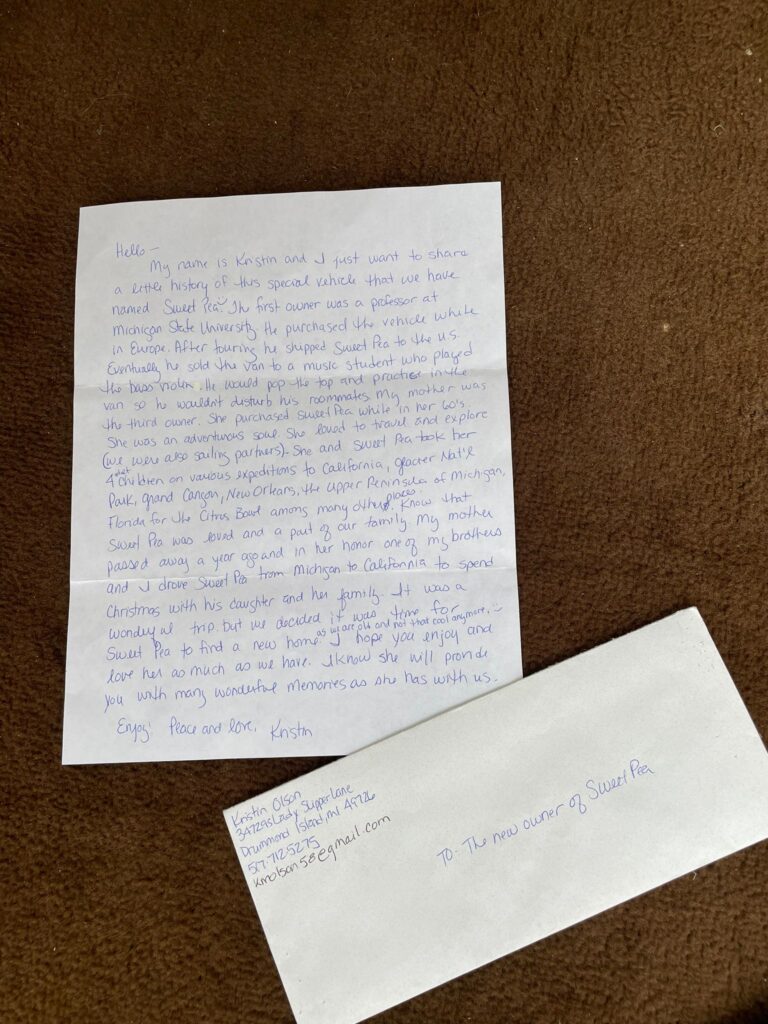 Hello -
My name is Kristin and I just want to share
a little history of this special vehicle that we have
named Sweet Pea. The first owner was a professor at
Michigan State University. He purchased the vehicle while
in Europe. After touring he shipped Sweet Pea to the U.S.
Eventually he sold the van to a music student who played
the bass violin. He would pop the top and practice in the
van so he wouldn't disturb his roommates. My mother was
the third owner. She purchased Sweet Pea while in her 60's.
She was an adventurous soul. She loved to travel and explore
(we were also sailing partners). She and Sweet Pea took her
4 children on various expeditions to California, Glacier Nat'l
Park, Grand Canyon, New Orleans, the Upper Peninsula of Michigan,
Florida for the Citrus Bowl among many other places. Know that
Sweet Pea was loved and a part of our family. My mother
passed away a year ago and in her honor one of my brothers
and I drove Sweet Pea from Michigan to California to spend
Christmas with his daughter and her family. It was a
wonderful trip. but we decided it was time for
Sweet Pea to find a new home as we are old and not that cool anymore. I hope you enjoy and
love her as much as we have. I know she will provide
you with many wonderful memories as she has with us.
Enjoy! Peace and love, Kristin
Kristin Olson
34729 S Lady Slipper Lane
Drummond Island, MI 49726
517-712-5275
kmolson58@gmail.com
TO: The new owner of Sweet Pea